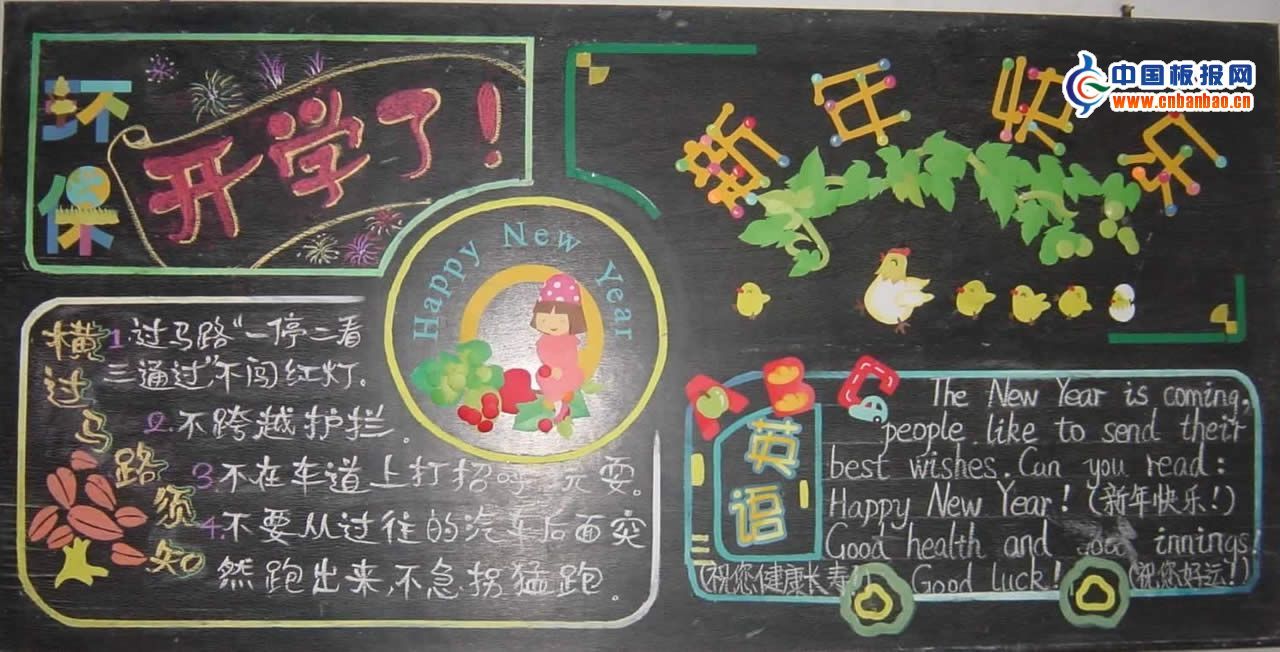 环保
开学了!
新年快乐
中国板报网
www.cnbanbao.cn
Happy New Year
横过马路须知
1.过马路“一停二看
三通过”不闯红灯。
2.不跨越护拦。
3.不在车道上打招呼 玩耍。
4.不要从过往的汽车后面突
然跑出来,不急拐猛跑。
ABC
英语
The New Year is coming,
people like to send their
best wishes. Can you read:
Happy New Year! (新年快乐!)
Good health and innings!
(祝您健康长寿!) Good luck! (祝您好运!)